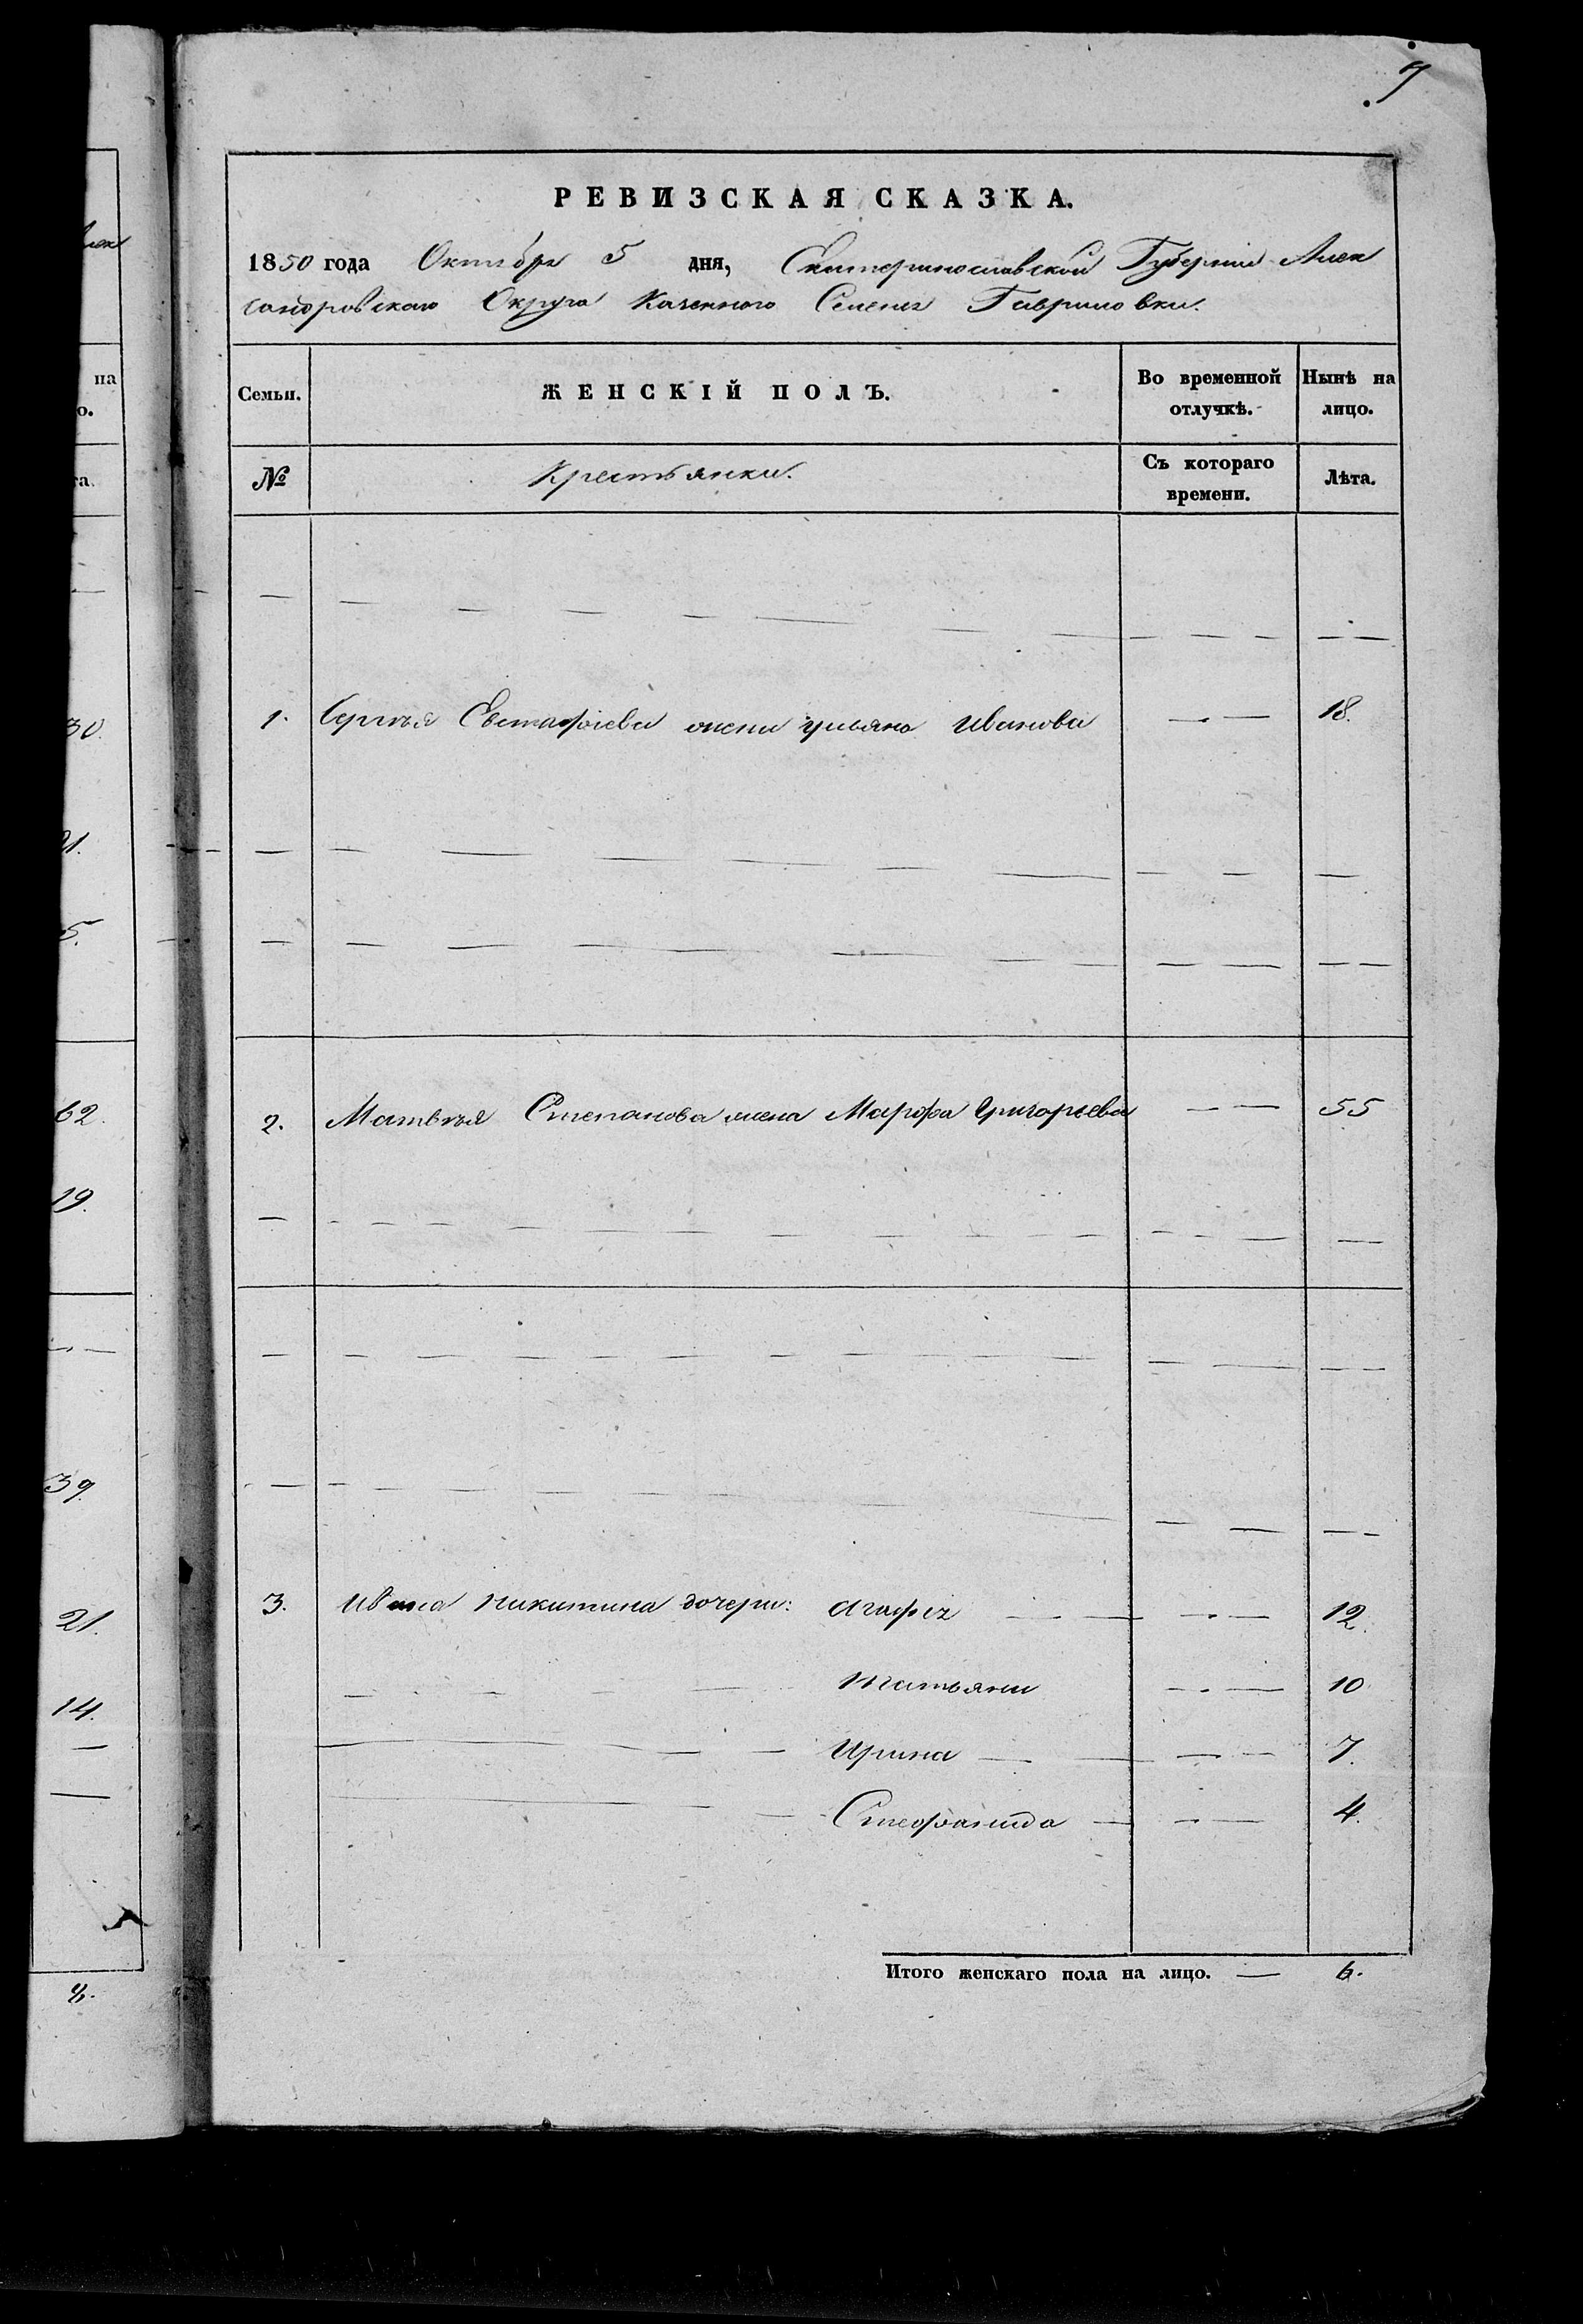 7
РЕВИЗСКАЯ СКАЗКА.
1850 года Октября 5 дня, Екатеринославской Губернии Алек
сандровскаго Округа Казеннаго Селенія Гавриловки.
Семьи.
ЖЕНСКІЙ ПОЛЪ.
Во временной отлучкѣ.
Нынѣ на лицо.
№
Крестьянки.
Съ котораго времени.
Лѣта.
1. Сергѣя Евстафіева жена Ульяна Иванова — — 18.
2. Матвѣя Степанова жена Марфа Григорьева — — 55
3. Ивана Никитина дочери: Агафія — — 12.
Татьяна — — 10
Ирина — — 7.
Стефанида — — 4.
Итого женскаго пола на лицо. — 6.
на
о.
та.
30.
21.
5.
62.
19.
39.
21.
14.